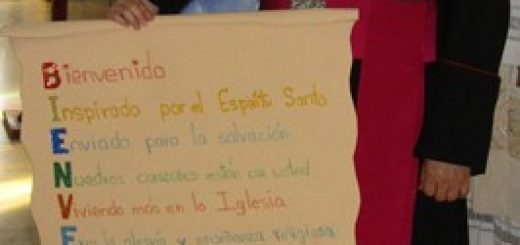 Bienvenido
Inspirado por el Espíritu Santo
Enviado para la salvación
Nuestros corazones están con usted
Viviendo más en la Iglesia
En la alegría y enseñanza religiosa